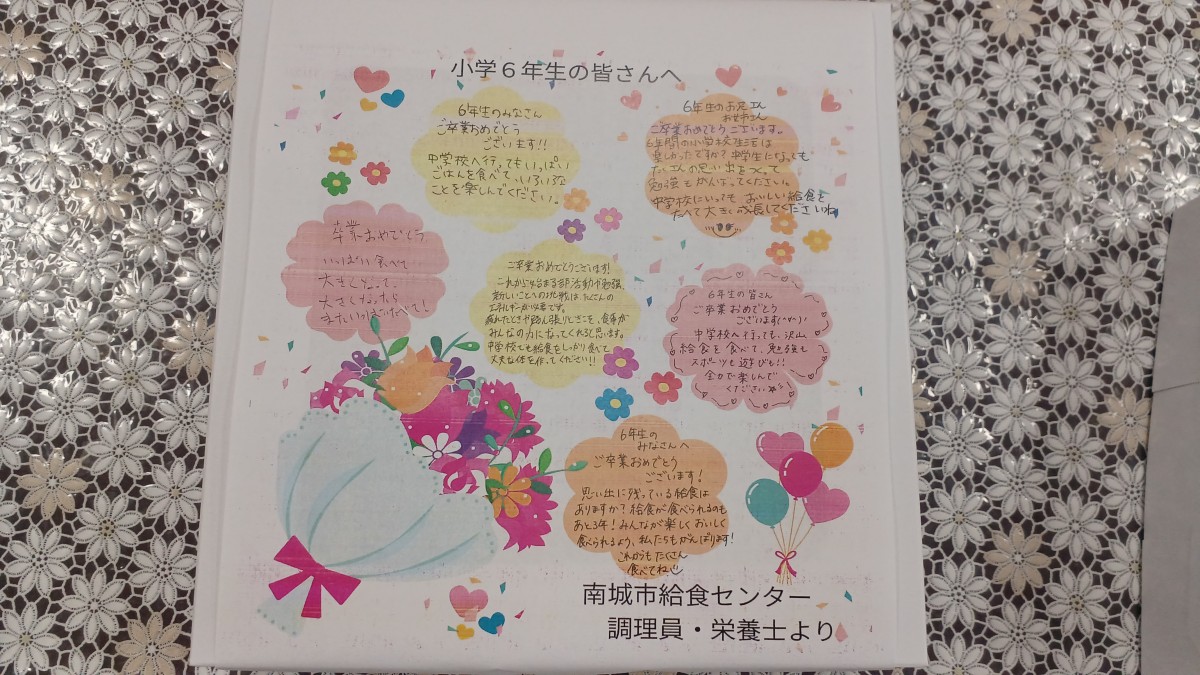 小学6年生の皆さんへ
6年生のみなさん
ご卒業おめでとう
ございます!!
中学校へ行ってもいっぱい
ごはんを食べて、いろいろな
ことを楽しんでください。
6年生のお兄さん
お姉さん
ご卒業おめでとうございます。
6年間の小学校生活は
楽しかったですか?中学生になっても
たくさんの思い出をつくって
勉強もがんばってください。
中学校にいっても おいしい給食を
たべて大きく成長してくださいね
卒業おめでとう
いっぱい食べて
大きくなって、
大きくなったら
またいっぱいたべて!
ご卒業おめでとうございます!
これから始まる部活動や勉強、
新しいことへの挑戦はたくさんの
エネルギーが必要です。
疲れたときや踏ん張りどきこそ、食事が
みんなの力になってくれると思います。
中学校でも給食をしっかり食べて
丈夫な体を作ってください!!
6年生の皆さん
ご卒業おめでとう
ございます(^^)!
中学校へ行っても、沢山
給食を食べて、勉強も
スポーツも遊びも!!
全力で楽しんで
ください
6年生の
みなさんへ
ご卒業おめでとう
ございます!
思い出に残っている給食は
ありますか?給食が食べられるのも
あと3年!みんなが楽しくおいしく
食べられるよう、私たちもがんばります!
これからもたくさん
食べてね
南城市給食センター
調理員・栄養士より